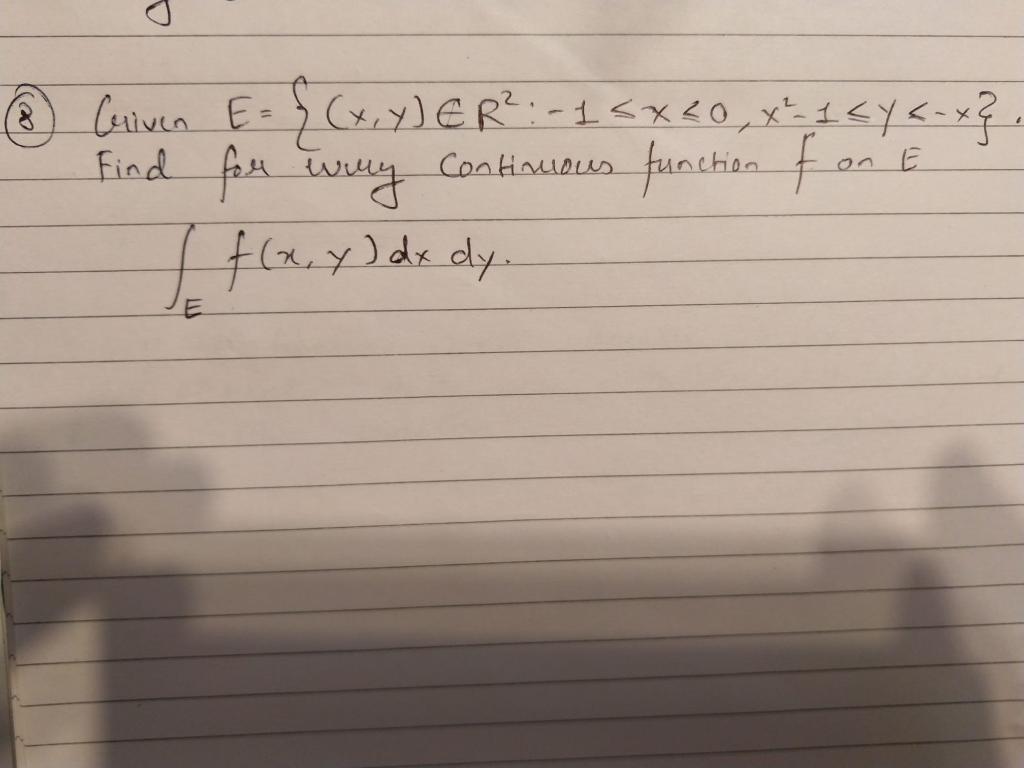 ⑧ Given E = { (x, y) ∈ R² : -1 ≤ x ≤ 0, x² - 1 ≤ y < -x } .
Find for every continuous function f on E
∫_E f(x, y) dx dy.